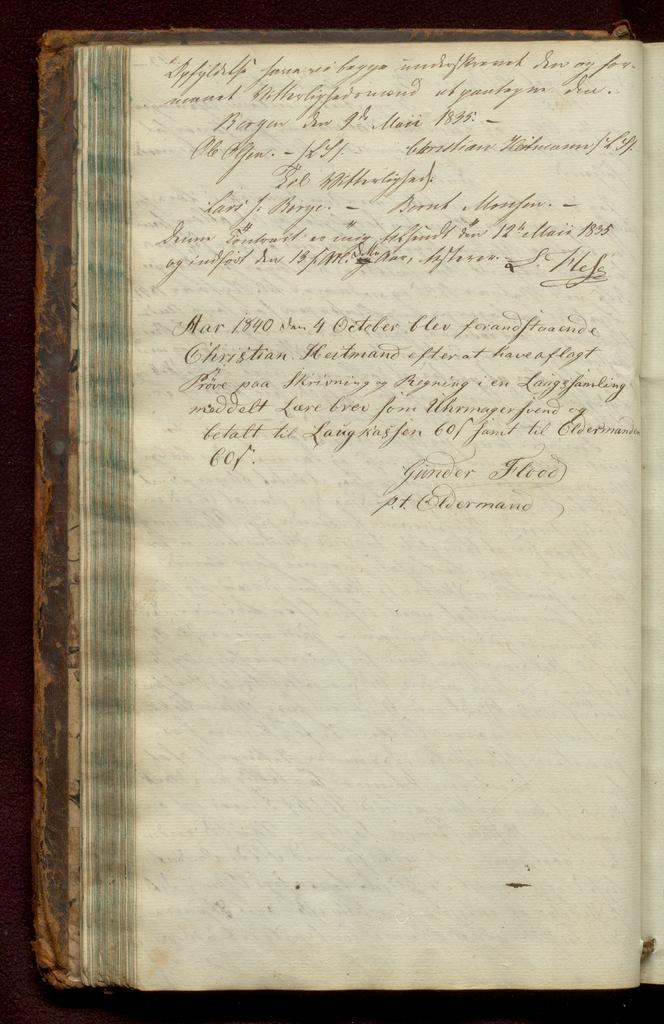 Opfyldelse have vi begge underskrevet den og for-
maaet Vitterlighedsmænd at paategne den.
Bergen den 9de Maii 1835. –
Ole Olsen. – /L.S/. Christian Heitmann /L.S/.
Til Vitterlighed:
Lars J. Berge. – Bernt Monsen. –
Denne Contract er mig tilsendt den 12te Maii 1835
og indført den 13 s. M. Aar, testerer
Aar 1840 den 4 October blev foranstaaende
Christian Heitmand efter at have aflagt
Prøve paa Skrivning og Regning i en Laugssamling
meddelt Lærebrev som Uhrmagersvend og
betalt til Laugkassen 60 s samt til Oldermanden
60 s.
Gunder Flood
p.t. Oldermand